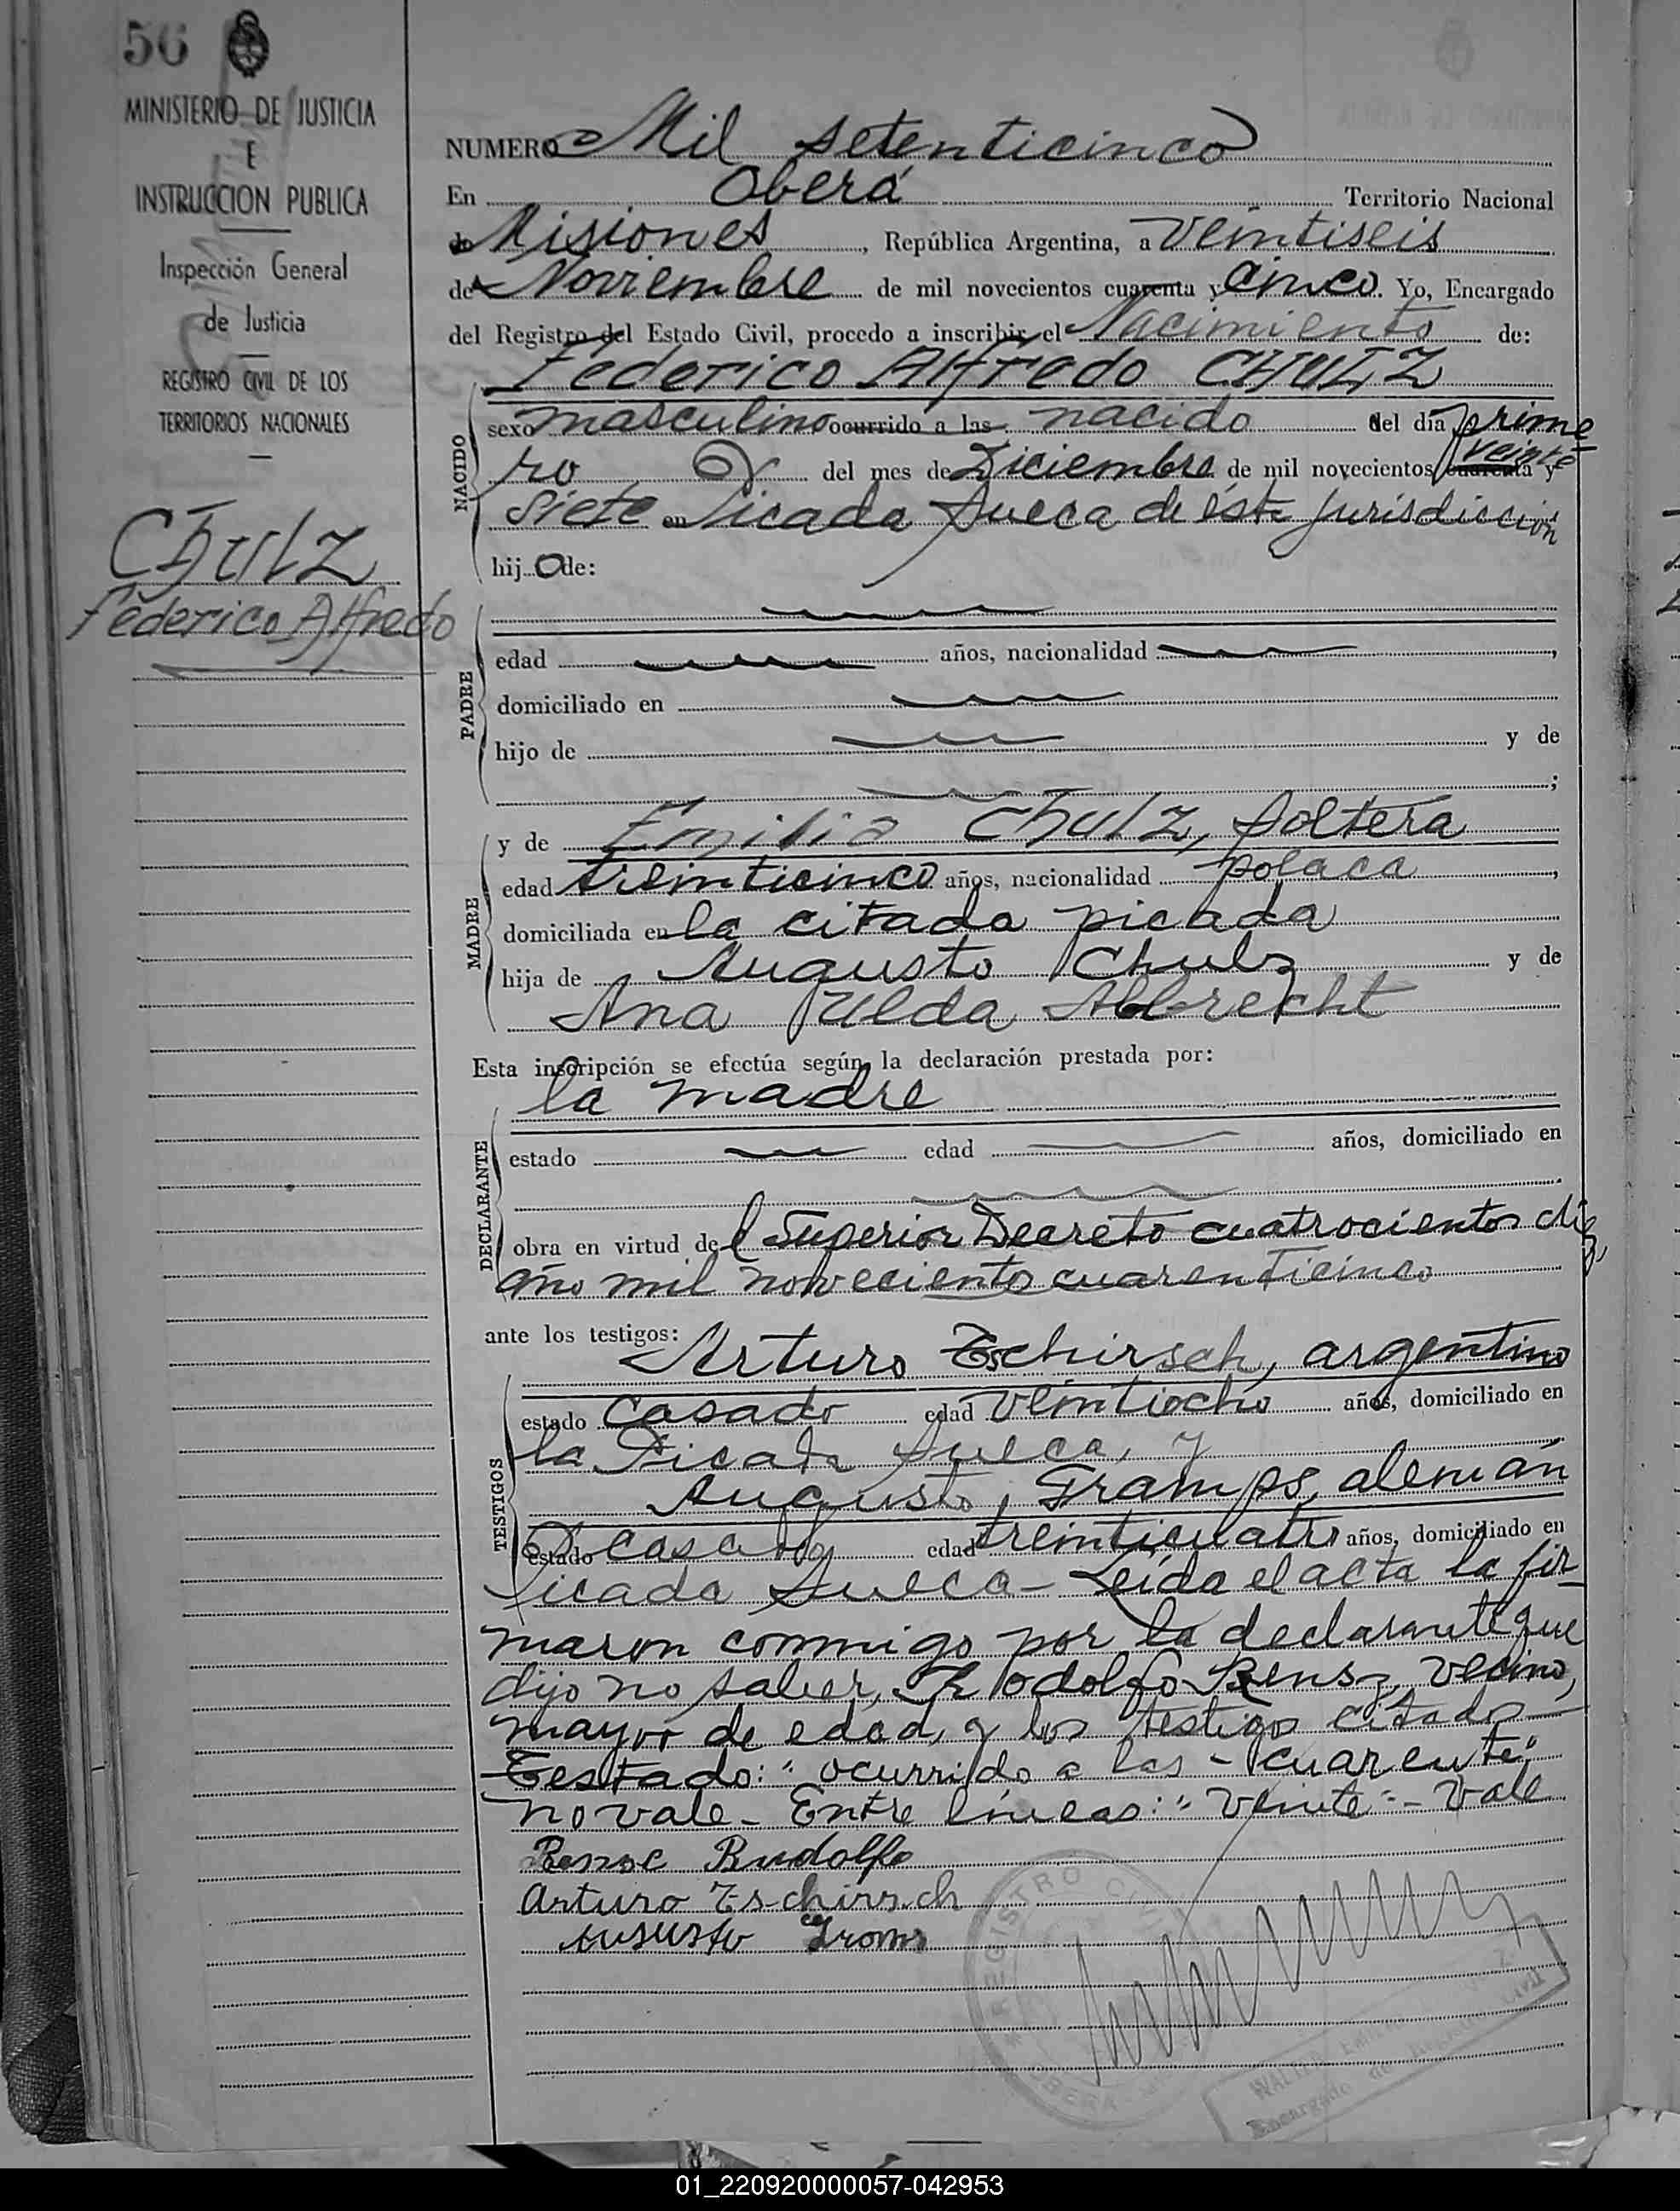 56
MINISTERIO DE JUSTICIA
E
INSTRUCCION PUBLICA
Inspección General
de Justicia
REGISTRO CIVIL DE LOS
TERRITORIOS NACIONALES
CHULZ
Federico Alfredo
NUMERO Mil setenticinco
En Oberá Territorio Nacional
de Misiones, República Argentina, a veintiseis
de Noviembre de mil novecientos cuarenta y cinco. Yo, Encargado
del Registro del Estado Civil, procedo a inscribir el Nacimiento de:
Federico Alfredo CHULZ
NACIDO
sexo masculino ocurrido a las nacido del día prime
ro del mes de Diciembre de mil novecientos cuarenta y veinte
siete en Picada Sueca de ésta jurisdicción
hijo de:
PADRE
edad años, nacionalidad ,
domiciliado en
hijo de y de
;
MADRE
y de Emilia Chulz, soltera
edad treinticinco años, nacionalidad polaca,
domiciliada en la citada picada
hija de Augusto Chulz y de
Ana Ulda Albrecht
Esta inscripción se efectúa según la declaración prestada por:
la madre
DECLARANTE
estado edad años, domiciliado en
obra en virtud del Superior Decreto cuatrocientos diez,
año mil novecientos cuarenticinco
ante los testigos:
Arturo Tschirsch, argentino
TESTIGOS
estado casado edad veintiocho años, domiciliado en
la Picada Sueca, y
Augusto Gramps, alemán
estado casado edad treinticuatro años, domiciliado en
Picada Sueca - Leída el acta la fir-
maron conmigo por la declarante que
dijo no saber, Rodolfo vecino,
mayor de edad, y los testigos citados
Testado: "ocurrido a las - cuarenta"
no vale - Entre líneas: "veinte" - Vale
Rudolfo
Arturo Tschirsch
Augusto
REGISTRO CIVIL
OBERA
Encargado del
01_220920000057-042953